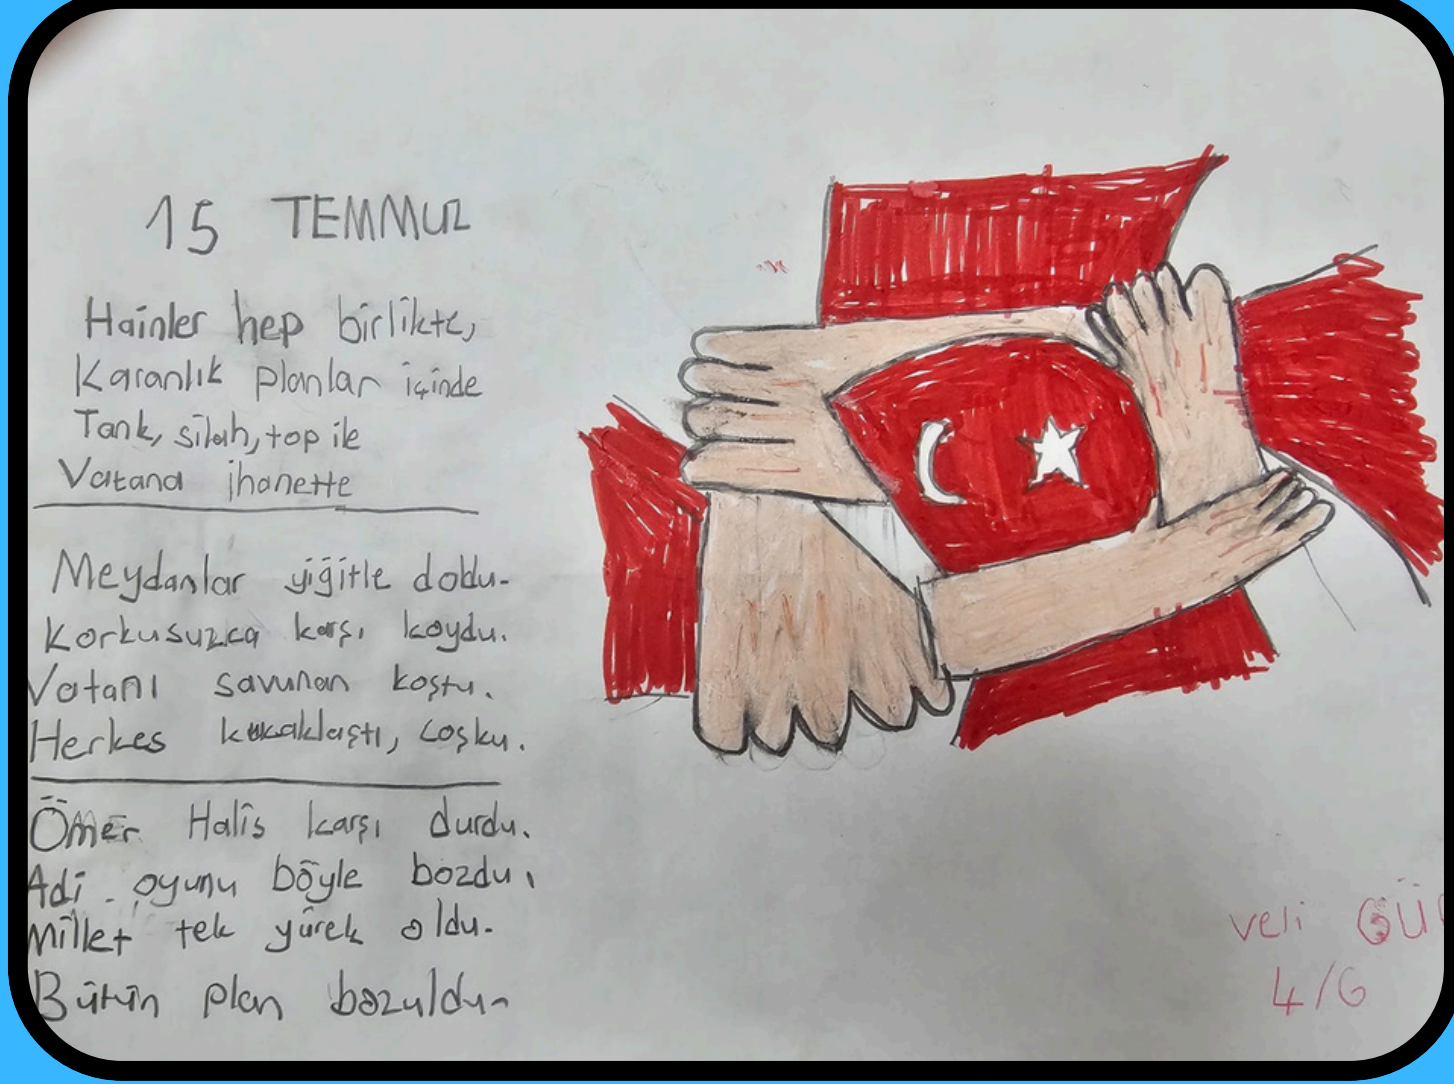 15 TEMMUZ
Hainler hep birlikte,
Karanlık planlar içinde
Tank, silah, top ile
Vatana ihanette
Meydanlar yiğitle doldu.
Korkusuzca karşı koydu.
Vatanı savunan koştu.
Herkes kucaklaştı, coşku.
Ömer Halis karşı durdu.
Adi oyunu böyle bozdu,
Millet tek yürek oldu.
Bütün plan bozuldu.
Veli
4/G